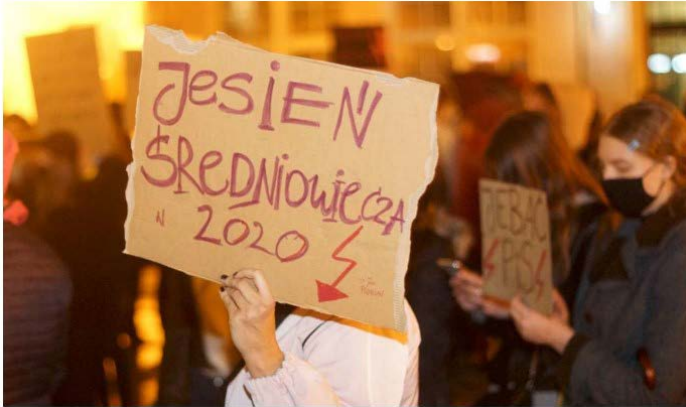 JeSIEŃ
ŚReDNIOWIeCZA
N 2020
JEBAĆ
PIS